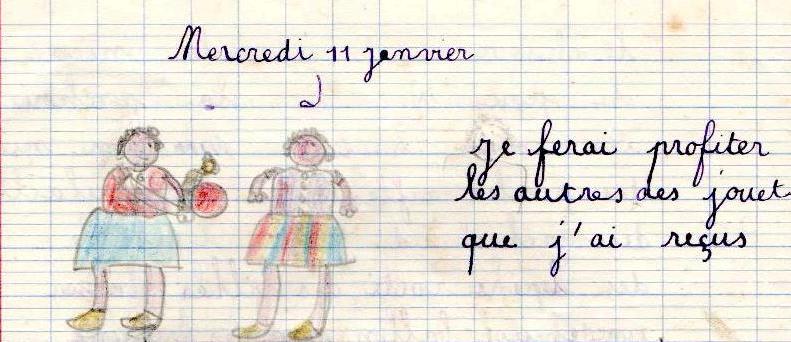 Mercredi 11 janvier
je ferai profiter
les autres des jouet
que j'ai reçus